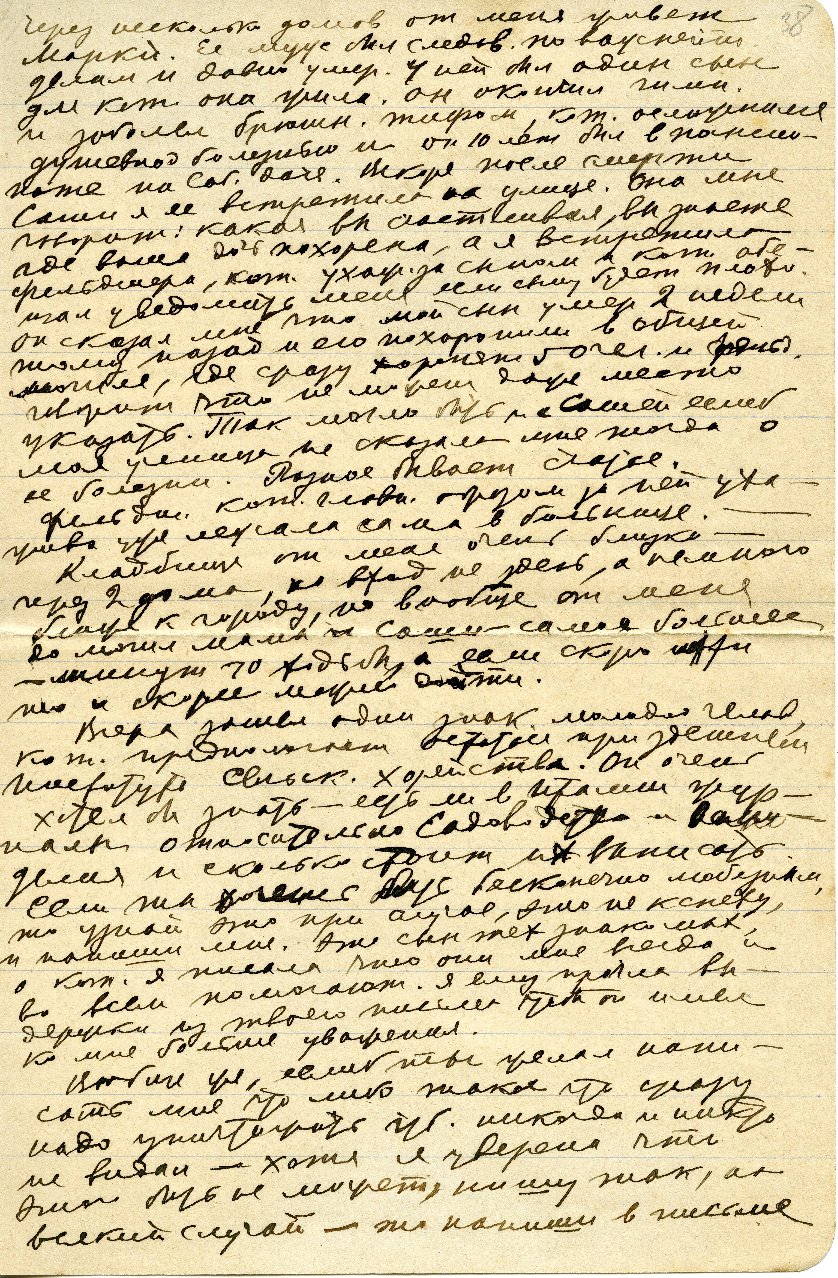 38
через несколько домов от меня живет
Марки. Ее муж был следов. по важнейш.
делам и давно умер. У ней был один сын
для кот. она жила. Он окончил гимн.
и заболел брюшн. тифом, кот. осложнился
душевной болезнью и он 10 лет был в пансио-
нате на Саб. даче. Вскоре после смерти
Саши я ее встретила на улице. Она мне
говорит: какая вы счастливая, вы знаете
где ваша дочь похорена, а я встретила
фельдшера, кот. ухаж. за сыном и кот. обе-
щал уведомить меня если сыну будет плохо.
Он сказал мне что мой сын умер 2 недели
тому назад и его похоронили в общей
могиле, где сразу хоронят 5 чел. и
говорит что не может даже место
указать. Так могло быть и с Сашей еслиб
моя ученица не сказала мне тогда о
ее болезни. Разное бывает
Фельдш. кот. главн. образом за ней уха-
живала уже лежала сама в больнице. —
Кладбище от меня очень близко —
через 2 дома, но вход не здесь, а немного
ближе к городу, но вообще от меня
до могил мамы и Саши самое большее
— минут 10 ходьбы, а если скоро идти
то и скорее можно дойти.
Вчера зашел один знак. молодой челов.,
кот. предполагает при здешнем
Институте Сельск. Хозяйства. Он очень
хотел бы знать — есть ли в Италии жур-
налы относительно Садоводства и
делия и сколько стоит их выписать.
Если ты хочешь быть бесконечно любезным,
то узнай это при случае, это не к спеху,
и напиши мне. Это сын тех знакомых,
о кот. я писала что они мне всегда и
во всем помогают. Я ему прочла вы-
держки из твоего письма чтоб он имел
ко мне больше уважения.
Вообще же, еслиб ты желал напи-
сать мне что либо такое что сразу
надо уничтожить чтб. никогда и никто
не видал — хотя я уверена что
этого быть не может, пишу так, на
всякий случай — то напиши в письме